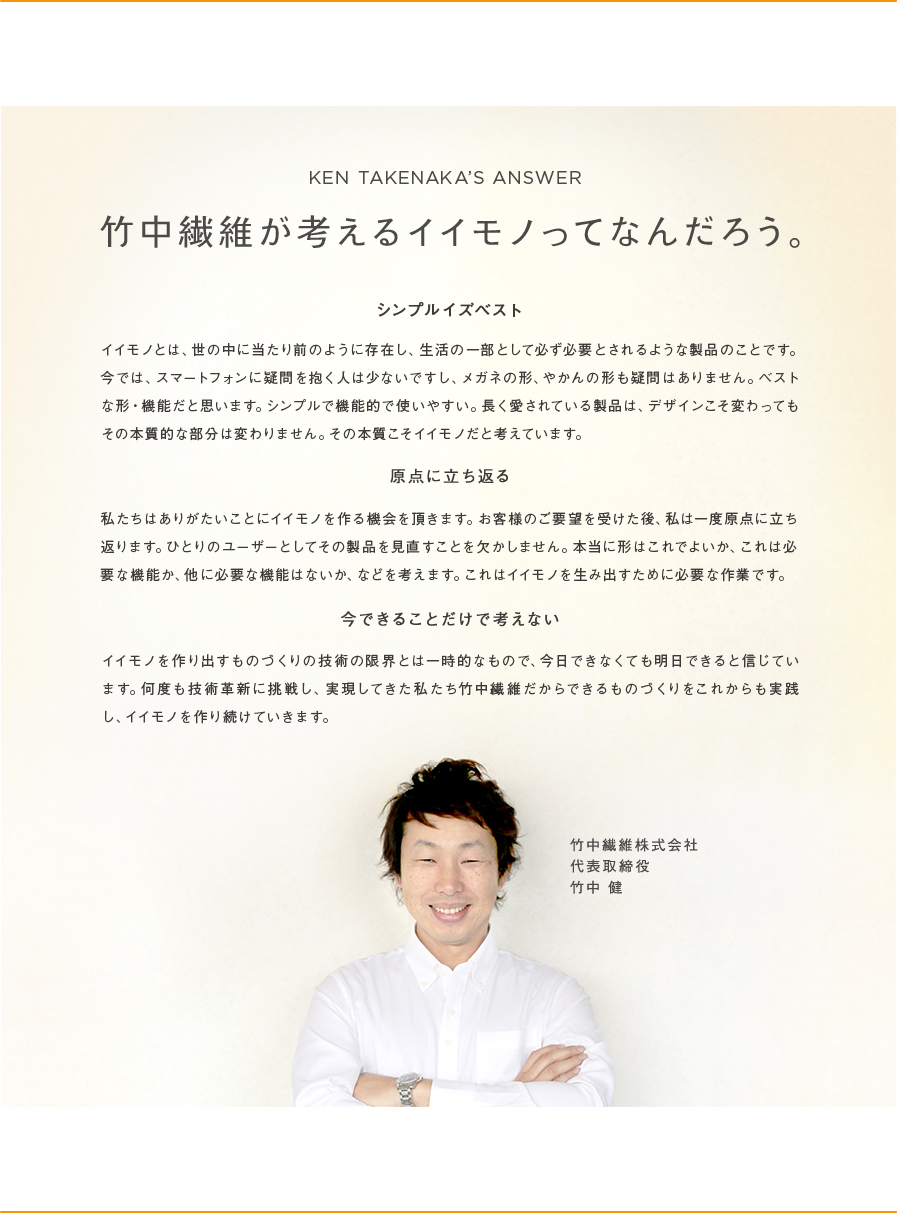 KEN TAKENAKA'S ANSWER
竹中繊維が考えるイイモノってなんだろう。
シンプルイズベスト
イイモノとは、世の中に当たり前のように存在し、生活の一部として必ず必要とされるような製品のことです。
今では、スマートフォンに疑問を抱く人は少ないですし、メガネの形、やかんの形も疑問はありません。ベスト
な形・機能だと思います。シンプルで機能的で使いやすい。長く愛されている製品は、デザインこそ変わっても
その本質的な部分は変わりません。その本質こそイイモノだと考えています。
原点に立ち返る
私たちはありがたいことにイイモノを作る機会を頂きます。お客様のご要望を受けた後、私は一度原点に立ち
返ります。ひとりのユーザーとしてその製品を見直すことを欠かしません。本当に形はこれでよいか、これは必
要な機能か、他に必要な機能はないか、などを考えます。これはイイモノを生み出すために必要な作業です。
今できることだけで考えない
イイモノを作り出すものづくりの技術の限界とは一時的なもので、今日できなくても明日できると信じてい
ます。何度も技術革新に挑戦し、実現してきた私たち竹中繊維だからできるものづくりをこれからも実践
し、イイモノを作り続けていきます。
竹中繊維株式会社
代表取締役
竹中 健